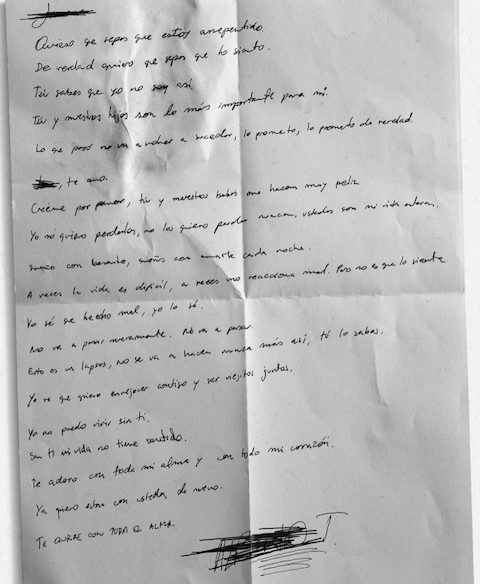 Quiero qe sepas que estoy arrepentido.
De verdad quiero que sepas que lo siento.
Tú sabes que yo no soy así
Tú y nuestros hijos son lo más importante para mí.
Lo que pasó no va a volver a suceder, lo prometo, lo prometo de verdad.
, te amo.
Créeme por favor, tú y nuestros bebés me hacen muy feliz
Yo no quiero perderlos, no los quiero perder nuncan, ustedes son mi vida entera.
sueño con besarte, sueño con amarte cada noche.
A veces la vida es difícil, a veces uno reacciona mal. Pero no es que lo sienta.
Yo sé qe hecho mal, yo lo sé.
No va a pasar nuevamente. No va a pasar.
Esto es un lapsus, no se va a hacer nunca más así, tú lo sabes.
Yo se que quiero envejecer contigo y ser viejitos juntos.
Yo no puedo vivir sin ti.
Sin ti mi vida no tiene sentido.
Te adoro con toda mi alma y con todo mi corazón.
Ya quiero estar con ustedes de nuevo.
TE QUIERE CON TODA EL ALMA.
J.